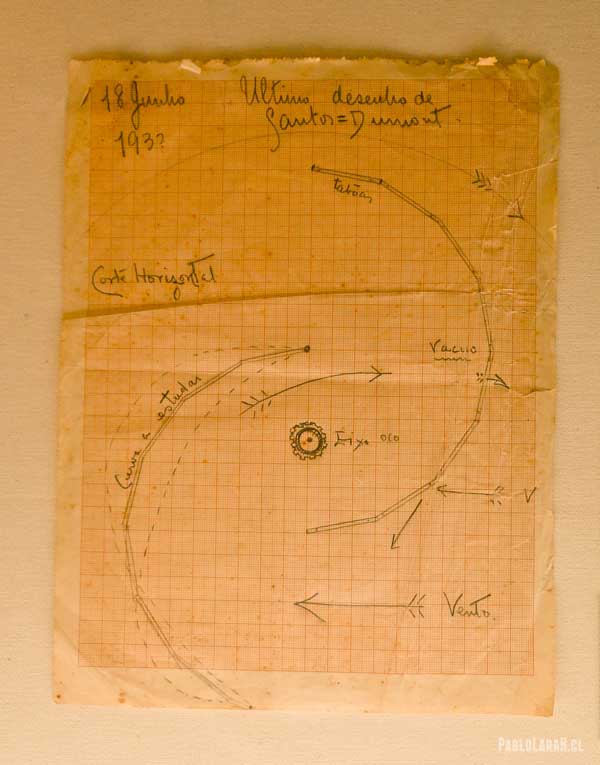 18 Junho
193?
Ultimo desenho de
Santos=Dumont.
taboas
Corte Horizontal
Vacuo
Curva a estudar
Eixo oco
V
Vento.
PabloLaraH.cl